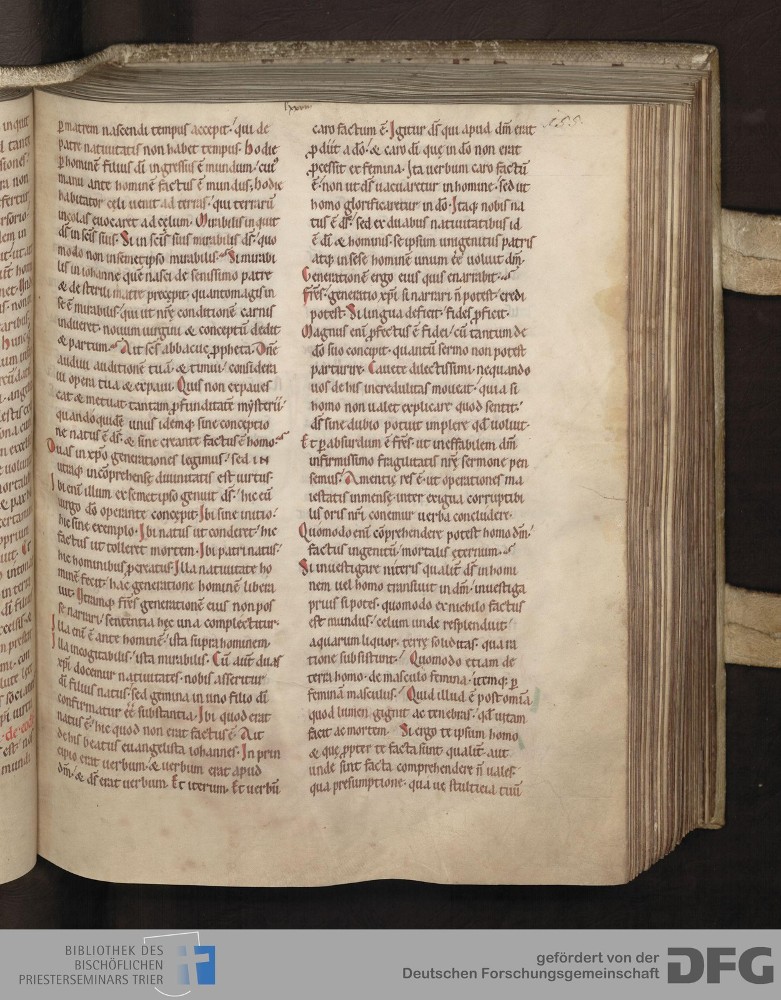 lxxxv
p matrem nascendi tempus accepit· qui de
patre natiuitatis non habet tempus· hodie
p hominē filius di ingressus ē mundum· cui᷒
manu ante hominē factus ē mundus, hodie
habitator celi uenit ad terras· qui terrarū
incolas euocaret ad celum. Mirabilis inquit
ds in scis suis. Si in scis suis mirabilis ds· quo
modo non insemetipso mirabilis. Si mirabi
lis in iohanne que nasci de senissimo patre
& de sterili matre precepit. quantomagis in
se ē mirabilis· qui ut nrę conditionē carnis
indueret· nouum uirgini & conceptū dedit
& partum. Ait scs abbacuc ppheta. Dne
audiui auditionē tuā· & timui· considera
ui opera tua & expaui. Quis non expaues
cat & metuat tantam pfunditatē mysterii·
quandoquidē unus idemq; sine conceptio
ne natus ē ds· & sine creante factus ē homo·
Duas in xpo generationes legimus· sed in
utraq; incōprehense diuinitatis est uirtus·
Ibi eni illum ex semetipso genuit ds· hic eū
uirgo do operante concepit. Ibi sine initio·
hic sine exemplo. Ibi natus ut conderet· hic
factus ut tolleret mortem. Ibi patri natus·
hic hominibus pcreatus. Illa natiuitate ho
minē fecit· hac generatione hominē libera
uit. Itamq; frs generationē eius non pos
se narrari· sententia hec una complectitur.
Illa eni ē ante hominē· ista supra hominem.
Illa incogitabilis· ista mirabilis. Cū aut duas
xpi docemur natiuitates· nobis asseritur
di filius natus· sed gemina in uno filio di
confirmatur ēē substantia. Ibi quod erat
natus ē· hic quod non erat factus ē. Ait
de his beatus euangelista iohannes. In prin
cipio erat uerbum· & uerbum erat apud
dm· & ds erat uerbum. Et iterum. Et uerbū
caro factum ē. Igitur ds qui apud dm erat
pdiit a do· & caro di quę in do non erat
pcessit ex femina. Ita uerbum caro factū
ē· non ut ds uacuaretur in homine· sed ut
homo glorificaretur in do. Itaq; nobis na
tus ē ds· sed ex duabus natiuitatibus id
ē di & hominis· se ipsum unigenitus patris
atq; in sese hominē unum ēē uoluit dm.
Generationē ergo eius quis enarrabit·
Frs· generatio xpi si narrari n potest· credi
potest. Si lingua deficit· fides pficit.
Magnus eni pfectus ē fidei· cū tantum de
do suo concepit· quantū sermo non potest
parturire. Cauete dilectissimi· nequando
uos de his incredulitas moueat· quia si
homo non ualet explicare quod sentit·
ds sine dubio potuit implere qd uoluit.
Et p absurdum ē frs· ut ineffabilem dm
infirmissimo fragilitatis nrę sermone pen
semus. Amentię res ē· ut operationes ma
iestatis inmense· inter exigua corruptibi
lis oris nri conemur uerba concludere.
Quomodo eni cōprehendere potest homo dm·
factus ingenitū· mortalis ęternum.
Si inuestigare niteris qualit ds in homi
nem uel homo transiuit in dm· inuestiga
prius si potes· quomodo ex nebilo factus
est mundus· celum unde resplenduit·
aquarum liquor· terrę soliditas· qua ra
tione subsistunt. Quomodo etiam de
terra homo· de masculo femina· itemq; p
feminā masculus. Quid illud ē post omia·
quod lumen gignit ac tenebras· qd uitam
facit ac mortem. Si ergo te ipsum homo
& que ppter te facta sunt qualit aut
unde sint facta comprehendere n uales·
qua presumptione· qua ue stultitia tuū
BIBLIOTHEK DES
BISCHÖFLICHEN
PRIESTERSEMINARS TRIER
gefördert von der
Deutschen Forschungsgemeinschaft
DFG